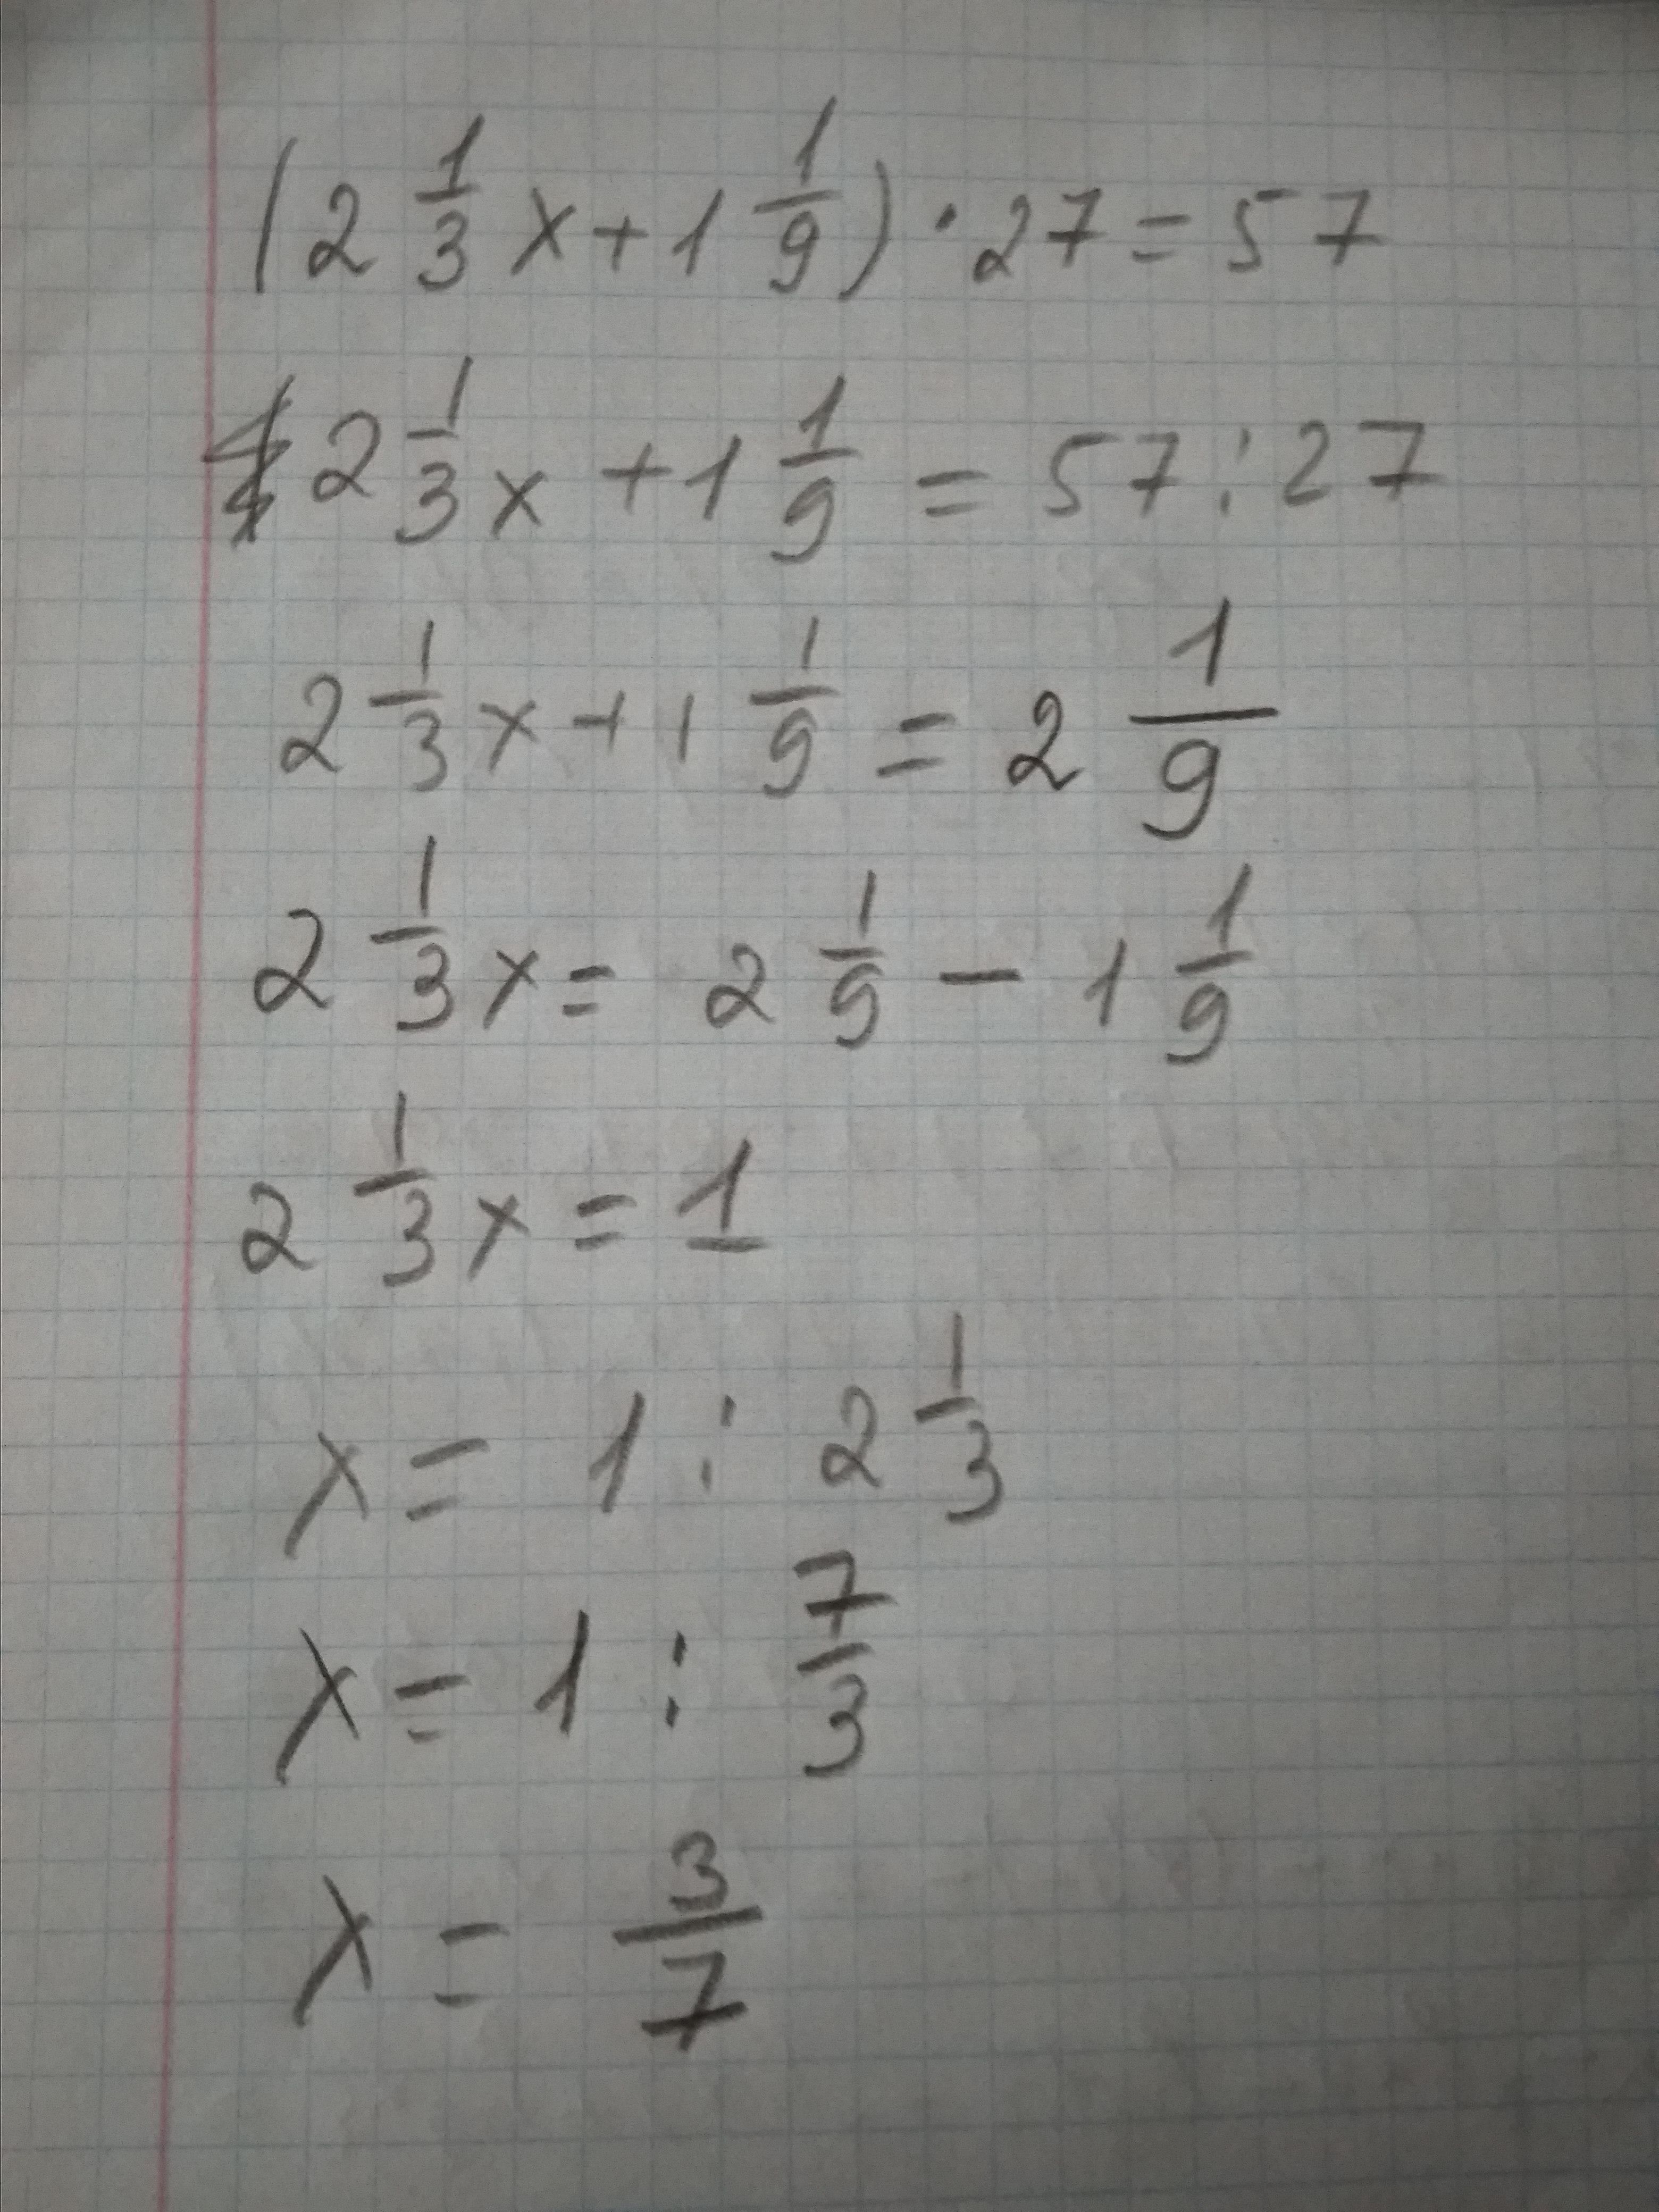 (2 1/3 x + 1 1/9) · 27 = 57
2 1/3 x + 1 1/9 = 57 : 27
2 1/3 x + 1 1/9 = 2 1/9
2 1/3 x = 2 1/9 - 1 1/9
2 1/3 x = 1
x = 1 : 2 1/3
x = 1 : 7/3
x = 3/7